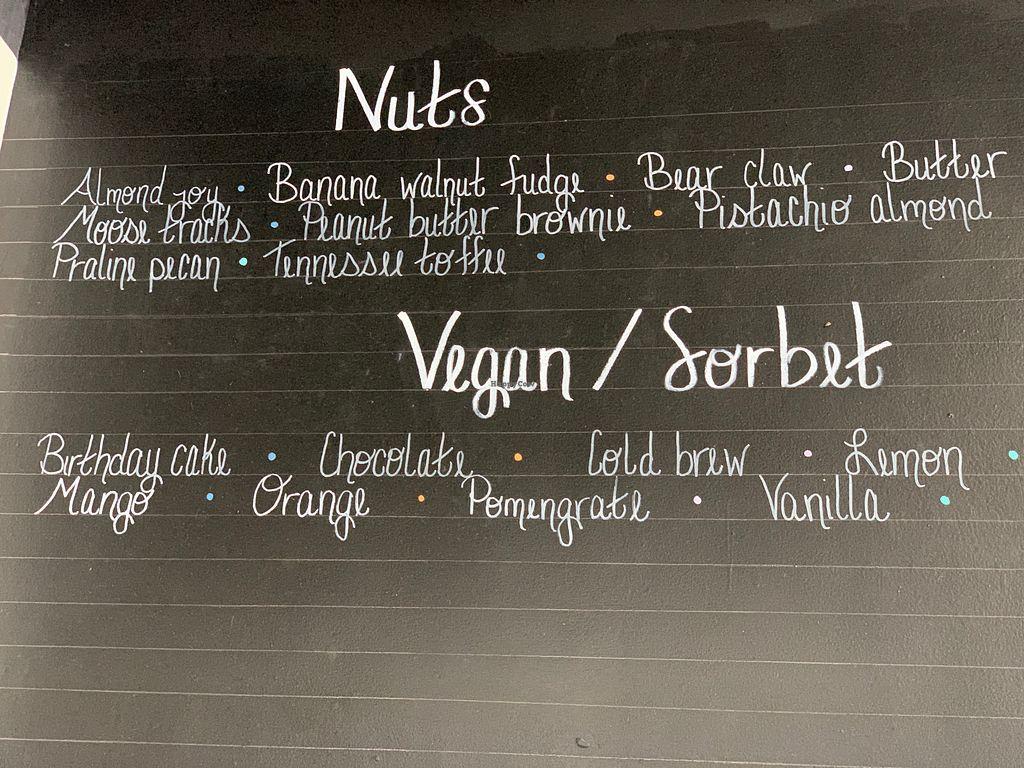 Nuts
Almond joy • Banana walnut fudge • Bear claw • Butter
Moose tracks • Peanut butter brownie • Pistachio almond
Praline pecan • Tennessee toffee •
Vegan / Sorbet
HappyCow
Birthday cake • Chocolate • Cold brew • Lemon •
Mango • Orange • Pomengrate • Vanilla •